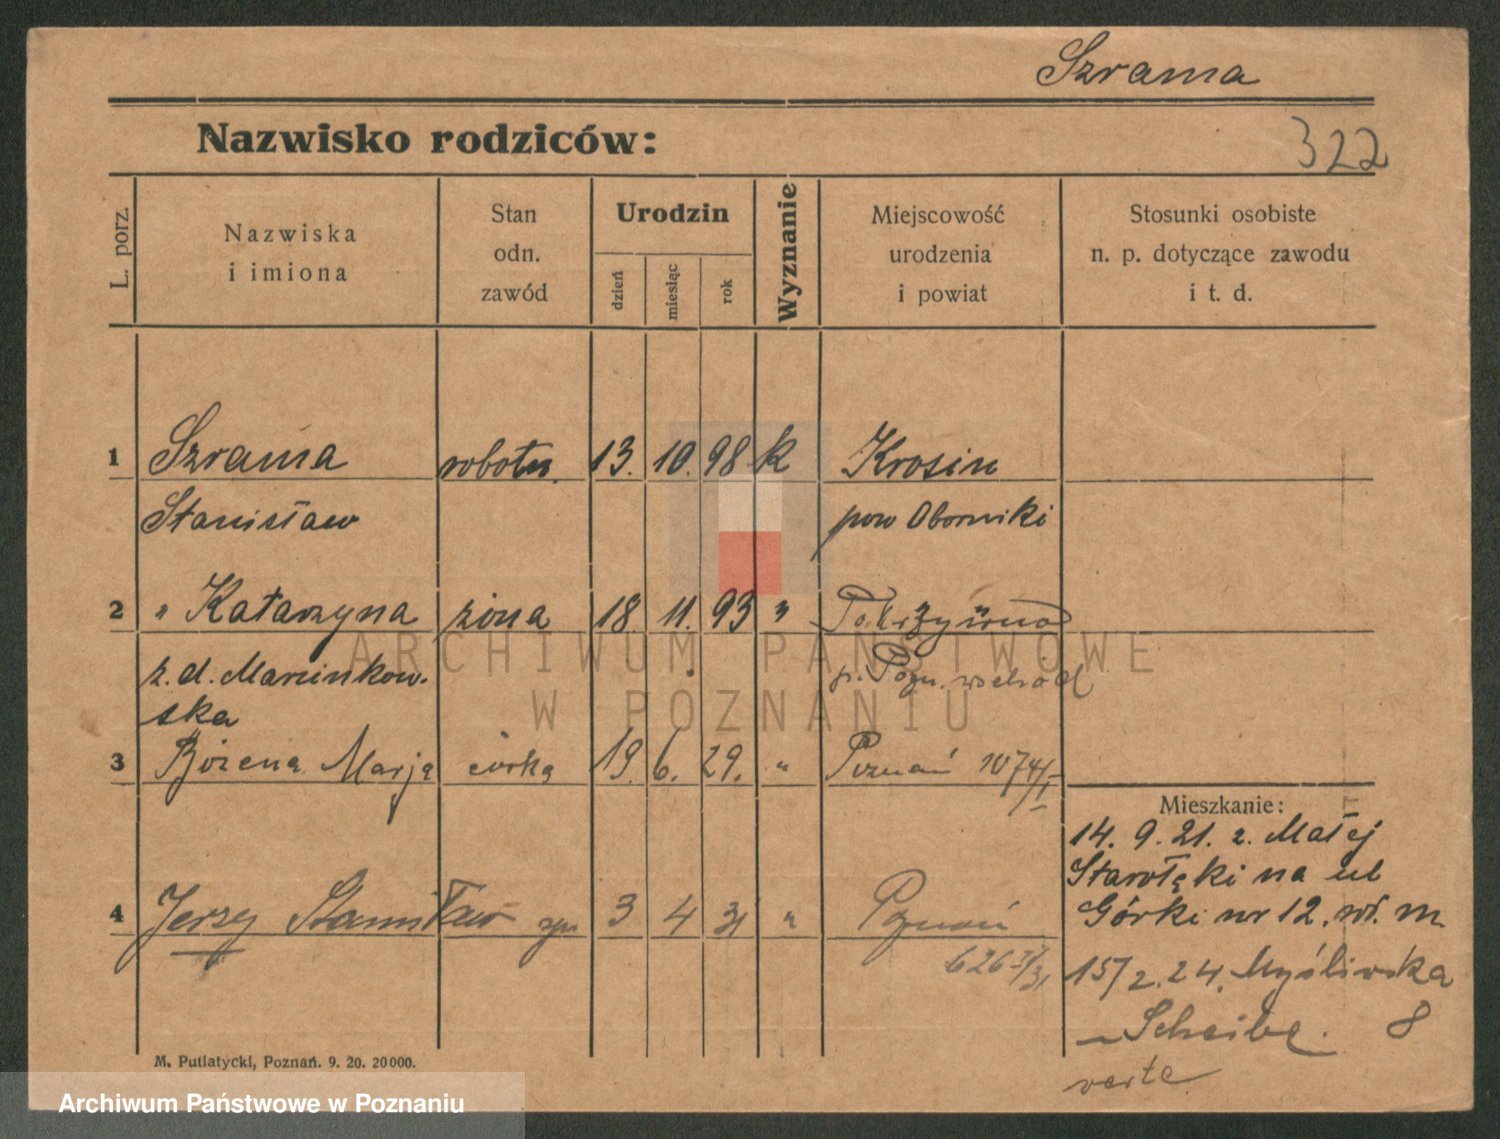 Szrama
Nazwisko rodziców:
322
L. porz.
Nazwiska
i imiona
Stan
odn.
zawód
Urodzin
dzień
miesiąc
rok
Wyznanie
Miejscowość
urodzenia
i powiat
Stosunki osobiste
n. p. dotyczące zawodu
i t. d.
1 Szrama robotn. 13. 10. 98 k Krosin
Stanisław pow Oborniki
2 " Katarzyna żona 18. 11. 93 "
z. d. Marcinkow- p. Pozn. wschód
ska
3 Bożena Marja córka 19. 6. 29. " Poznań 1074/I
4 Jerzy Stanisław syn 3 4 31 " Poznań
626 /31
Mieszkanie:
14. 9. 21. z. Małej
Starołęki na ul
Górki nr 12. wł. m
15/2. 24. Myśliwska
– Scheibe. 8
verte
M. Putiatycki, Poznań. 9. 20. 20000.
ARCHIWUM PAŃSTWOWE
W POZNANIU
Archiwum Państwowe w Poznaniu